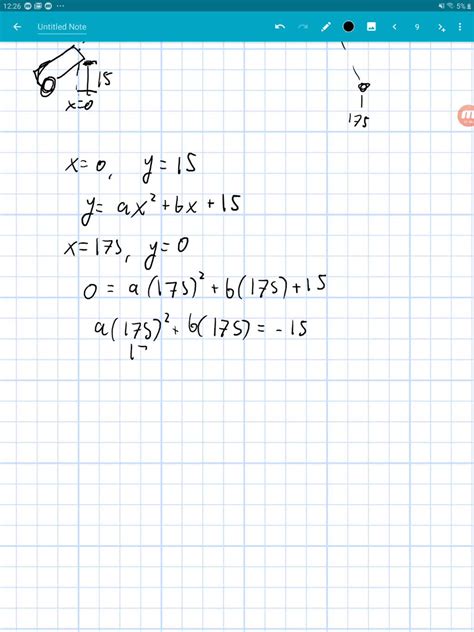 12:26 5%
Untitled Note 9
15
x=0
175
x=0, y=15
y= ax²+bx+15
x=175, y=0
0 = a(175)²+b(175)+15
a(175)²+b(175)=-15